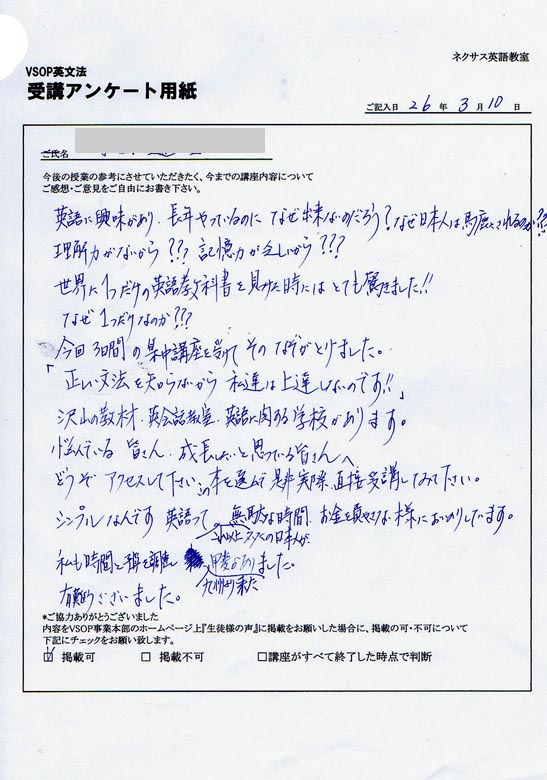 ネクサス英語教室
VSOP英文法
受講アンケート用紙
ご記入日 26 年 3 月 10 日
ご氏名
今後の授業の参考にさせていただきたく、今までの講座内容について
ご感想・ご意見をご自由にお書き下さい。
英語に興味があり、長年やっているのになぜ出来ないのだろう?なぜ日本人は馬鹿にされるのか??
理解力がないから??記憶力が乏しいから???
世界に1つだけの英語教科書を見つけた時にはとても驚きました!!
なぜ1つだけなのか???
今回3日間の集中講座を受けてそのなぞがとけました。
「正しい文法を知らないから私達は上達しないのです!!」
沢山の教材、英会話教室、英語に関する学校があります。
悩んでいる皆さん、成長したいと思っている皆さんへ
どうぞアクセスして下さい この本を選んで是非実際、直接受講してみて下さい。
シンプルなんです英語って 無駄な時間、お金を費やさない様においのりしています。
これ以上多くの日本人が
私も時間と 甲斐がありました。
九州から来た
有難うございました。
*ご協力ありがとうございました
内容をVSOP事業本部のホームページ上『生徒様の声』に掲載をお願いした場合に、掲載の可・不可について
下記にチェックをお願い致します。
☑ 掲載可 □ 掲載不可 □講座がすべて終了した時点で判断